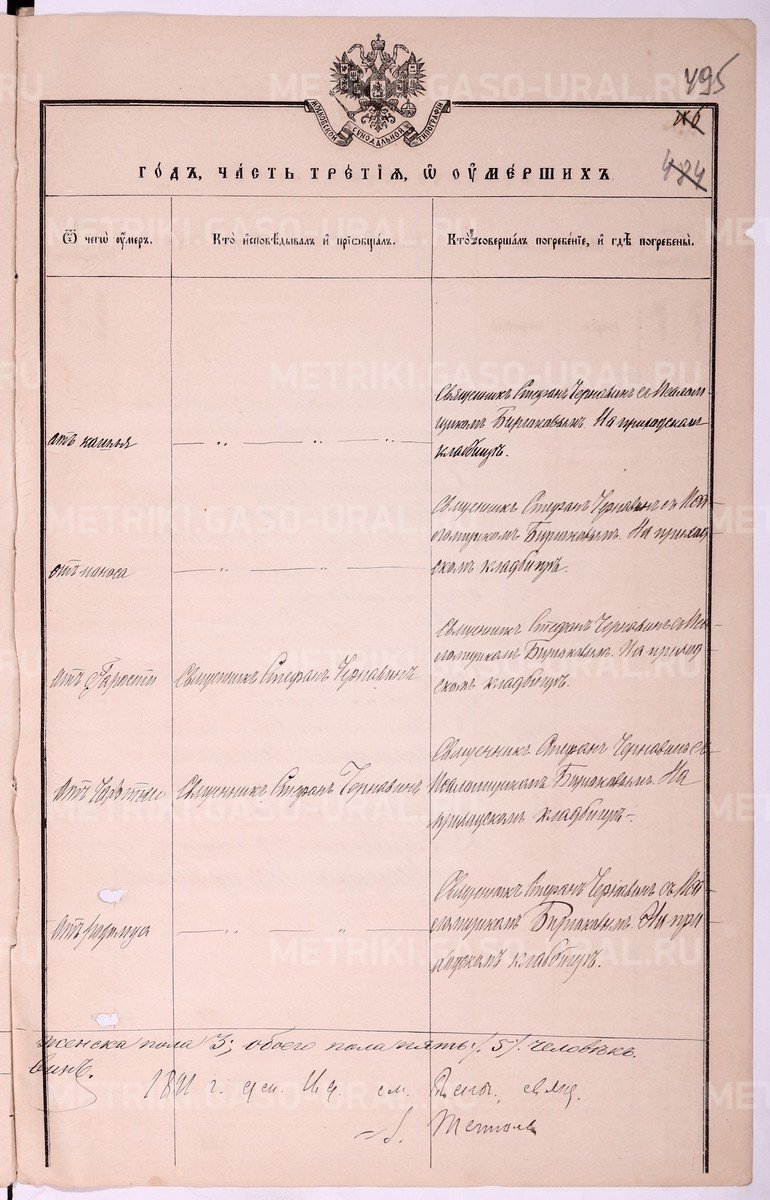 495
484
МОСКОВСКОЙ СѴНОДАЛЬНОЙ ТИПОГРАФІИ
ГО́ДЪ, ЧА́СТЬ ТРЕ́ТІѦ, Ѡ҆ ОУ҆МЕ́РШИХЪ
Ѿ чегѡ̀ ᲂу҆́меръ.
Кто̀ и҆сповѣ́дывалъ и҆ прїѡбща́лъ.
Кто̀ соверша́лъ погребе́нїе, и҆ гдѣ̀ погребены̀.
отъ кашля
Священникъ Стефанъ Чернавинъ съ Псалом-
щикомъ Бирюковымъ. На приходскомъ
кладбищѣ.
отъ поноса
Священникъ Стефанъ Чернавинъ съ Пса-
ломщикомъ Бирюковымъ. На приход-
скомъ кладбищѣ.
отъ старости
Священникъ Стефанъ Чернавинъ
Священникъ Стефанъ Чернавинъ съ Пса-
ломщикомъ Бирюковымъ. На приход-
скомъ кладбищѣ.
отъ чахотки
Священникъ Стефанъ Чернавинъ
Священникъ Стефанъ Чернавинъ съ
Псаломщикомъ Бирюковымъ. На
приходскомъ кладбищѣ.
отъ
Священникъ Стефанъ Чернавинъ съ Пса-
ломщикомъ Бирюковымъ. На при-
ходскомъ кладбищѣ.
женска пола 3; обоего пола пять /5/ человѣкъ.
1891 г.
METRIKI.GASO-URAL.RU